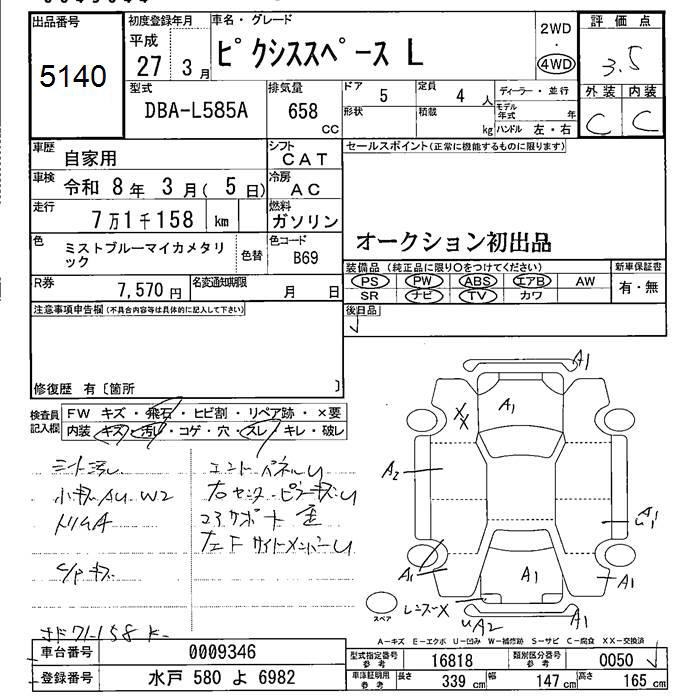 出品番号
5140
初度登録年月
平成
27 3月
車名・グレード
ピクシススペース L
2WD
・
4WD
評価点
3.5
外装 内装
C C
型式
DBA-L585A
排気量
658
CC
ドア 5
定員 4 人
形状
積載
kg
ディーラー・並行
モデル年式 年
ハンドル 左・右
車歴
自家用
シフト
CAT
セールスポイント(正常に機能するものに限ります)
オークション初出品
車検
令和 8年 3月( 5日)
冷房
AC
走行
7万1千158 km
燃料
ガソリン
色
ミストブルーマイカメタリック
色替
色コード
B69
装備品(純正品に限り○をつけてください)
PS PW ABS エアB AW
SR ナビ TV カワ
新車保証書
有・無
R券
7,570 円
名変通知期限
月 日
後日品
注意事項申告欄(不具合内容等は具体的に記入して下さい)
修復歴 有〔箇所 〕
検査員記入欄
FW キズ・飛石・ヒビ割・リペア跡・×要
内装 キズ・汚レ・コゲ・穴・スレ・キレ・破レ
シート汚レ
小キズAU W2
トリムA
C/Pキズ
エンドパネルU
右センターピラーキズU
コアサポート 金
左F サイドメンバーU
A1
A1
XX
A2
A1
A1
A1
A1
レンズX
UA2
A1
スペア
A-キズ E-エクボ U-凹み W-補修跡 S-サビ C-腐食 XX-交換済
車台番号
0009346
登録番号
水戸 580 よ 6982
型式指定番号
参考
16818
類別区分番号
参考
0050
車庫証明用
参考
長さ 339 cm
幅 147 cm
高さ 165 cm